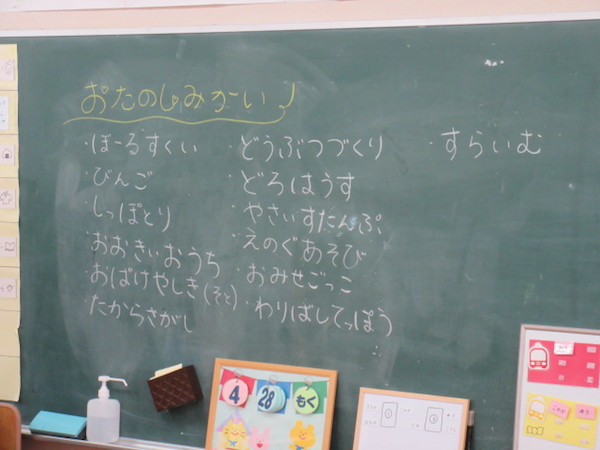 おたのしみかい♪
・ぼーるすくい
・びんご
・しっぽとり
・おおきいおうち
・おばけやしき(そと)
・たからさがし
・どうぶつづくり
・どろはうす
・やさいすたんぷ
・えのぐあそび
・おみせごっこ
・わりばしてっぽう
・すらいむ
4 28 もく